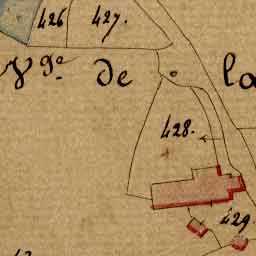 426 427.
Vge. de la
428.
429.